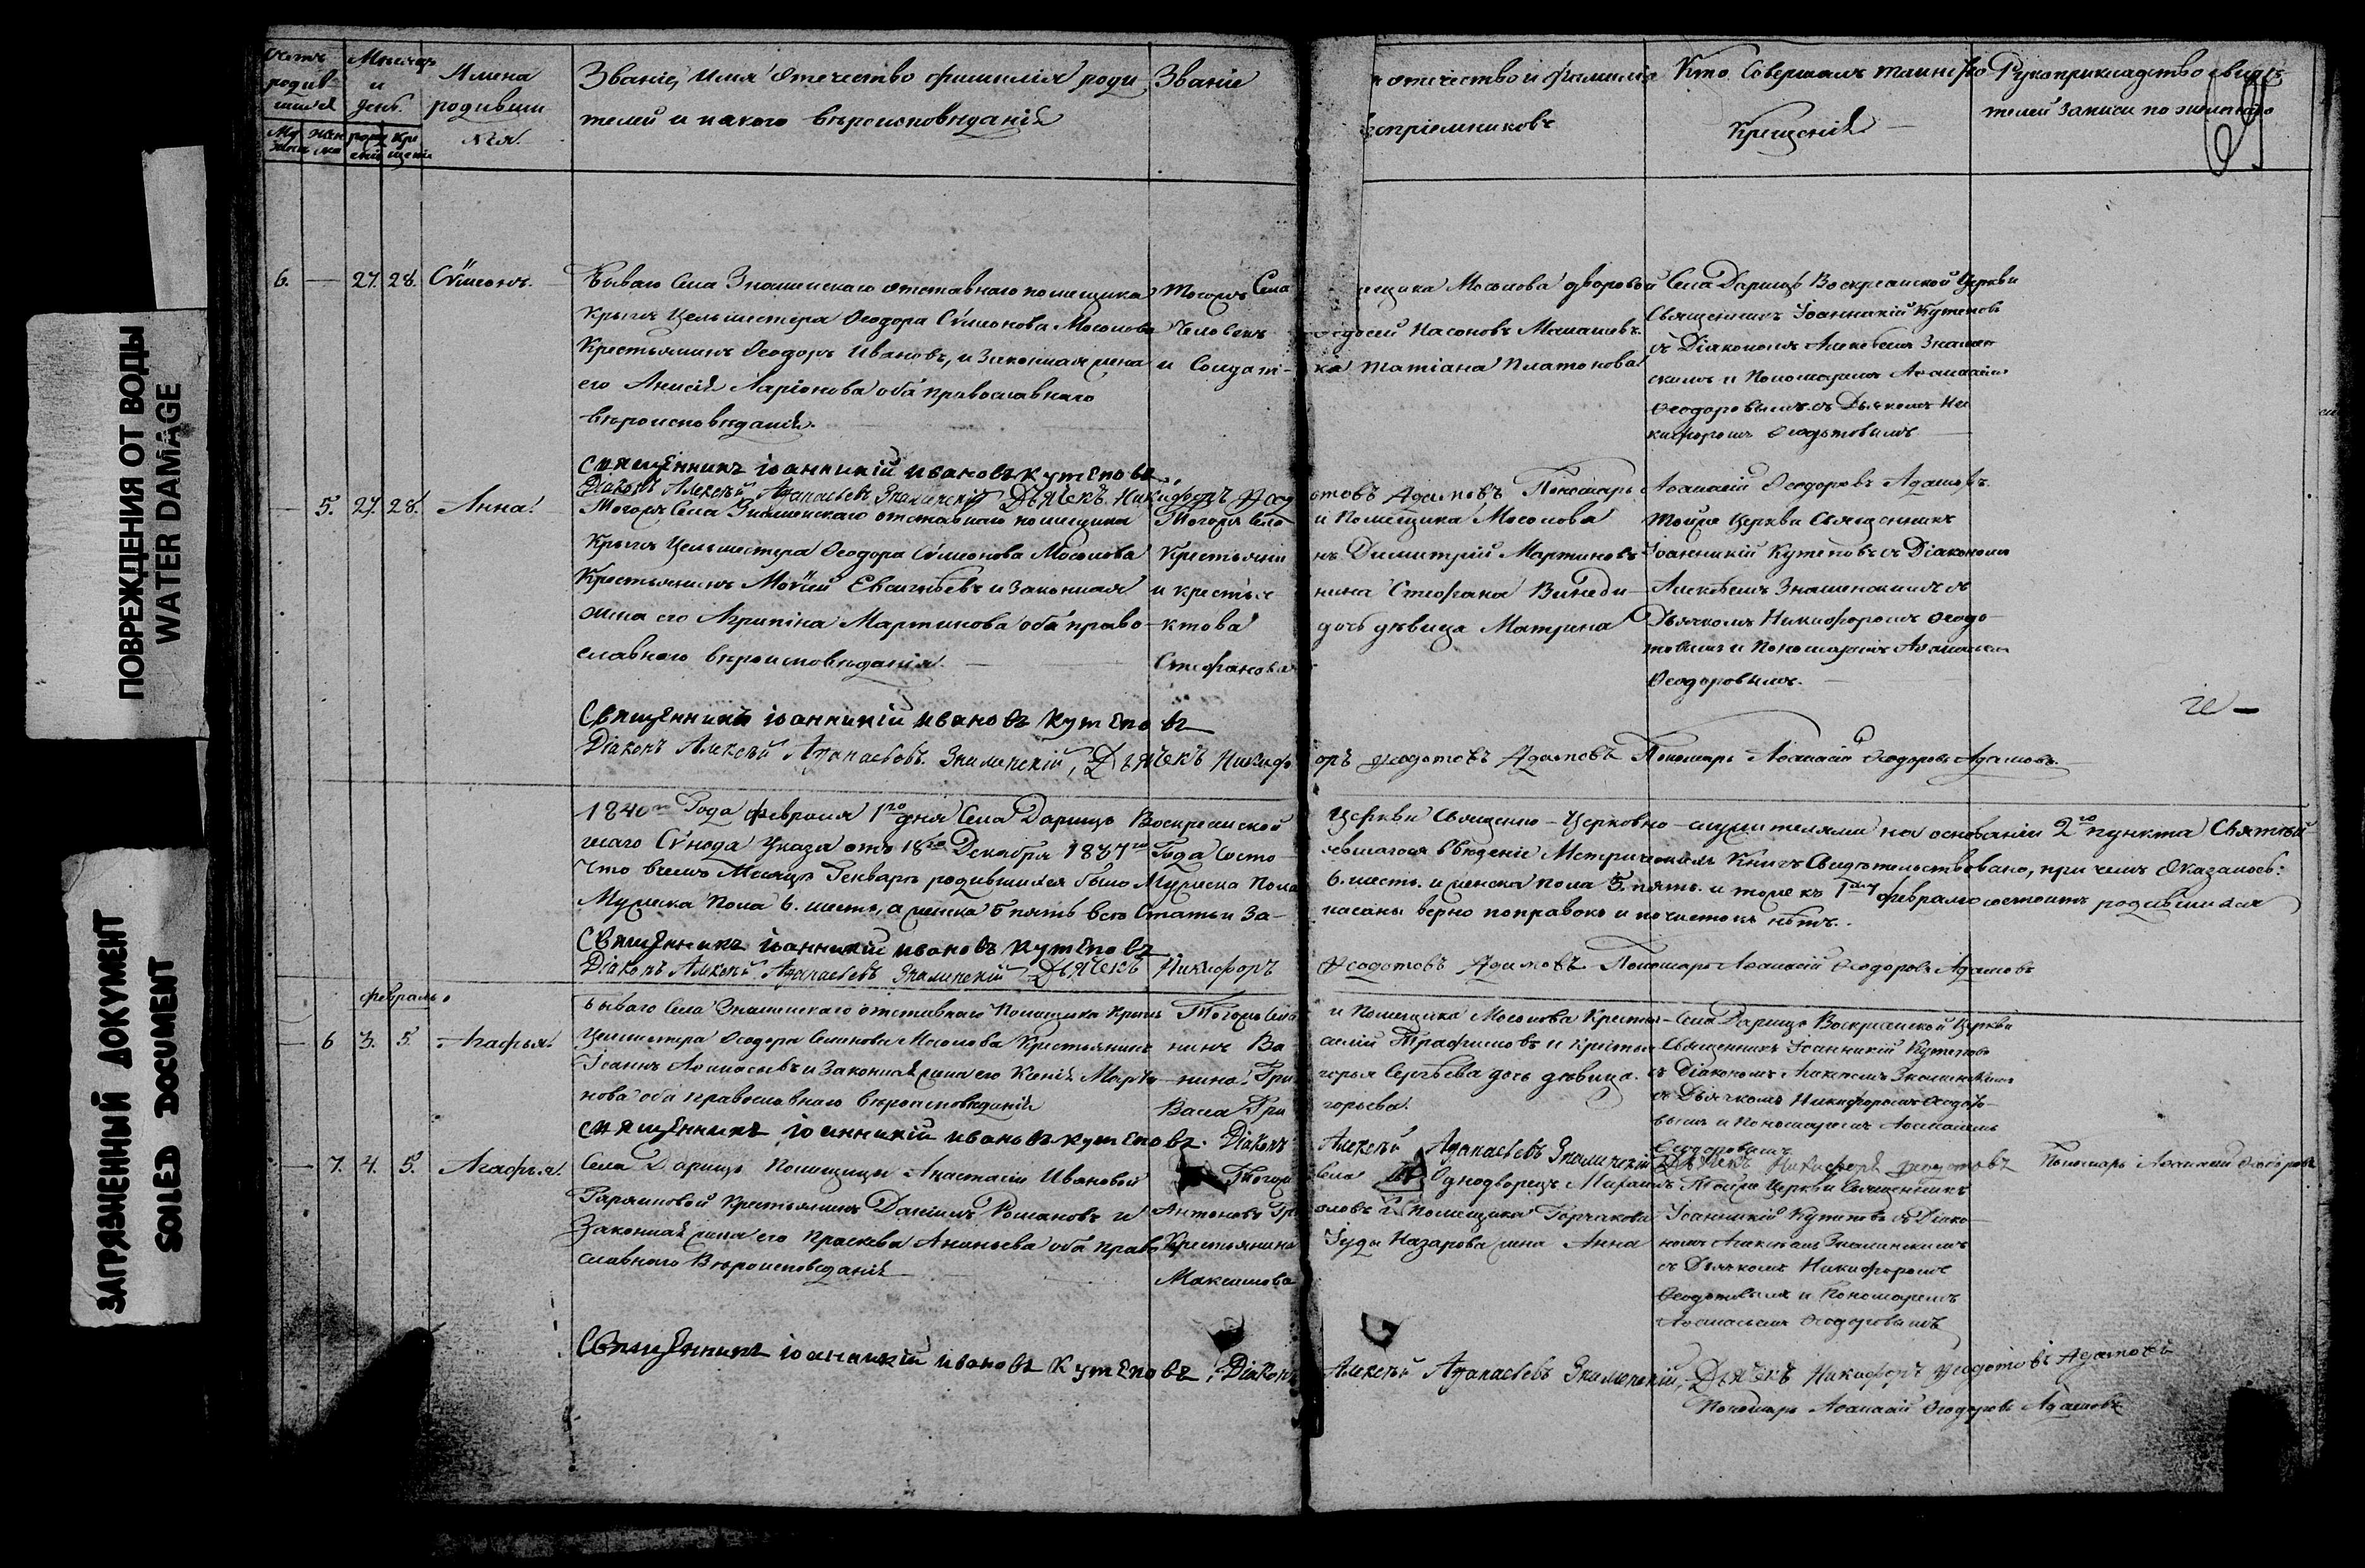 ПОВРЕЖДЕНИЯ ОТ ВОДЫ
WATER DAMAGE
ЗАГРЯЗНЕННЫЙ ДОКУМЕНТ
SOILED DOCUMENT
Счетъ родив-
шихся
Мѣсяцъ
и
день.
Имена
родивши
хся.
Званіе, имя отечество фамилія роди
телей и какого вѣроисповѣданія
Званіе
отечество и фамилія
воспріемниковъ
Кто совершалъ таинство
Крещенія
Рукоприкладство свидѣ
телей записи по желанію
69
6. — 27. 28. Сѵмеонъ.
Села Знаменскаго отставнаго помещика
Ѳеодора Сѵмеонова Мосолова
Крестьянинъ Ѳеодоръ Ивановъ, и законная жена
его Анисія Ларіонова оба православнаго
вѣроисповѣданія.
Тогожъ Села
человекъ
и Солдат-
Мосолова дворовой
Ѳедосей Пасоновъ
ка Татіана Платонова
Села Дарищъ Воскресенской Церкви
Священникъ Іоанникій Кутеповъ
съ Діакономъ Алексѣемъ Знамен
скимъ и Пономаремъ Аѳанасіемъ
Ѳеодоровымъ съ Дьячкомъ Ни
кифоромъ Ѳеодотовымъ
Священникъ Іоанникій Ивановъ Кутеповъ
Діаконъ Алексѣй Аѳанасьевъ Знаменскій Дьячекъ Никифоръ Ѳеод
отовъ Адамовъ Пономарь Аѳанасій Ѳеодоровъ Адамовъ.
— 5. 27. 28. Анна.
Тогожъ Села Знаменскаго отставнаго помещика
Ѳеодора Сѵмеонова Мосолова
Крестьянинъ Моѵсей Евсигнѣевъ и законная
жена его Агрипина Мартинова оба право-
славнаго вѣроисповѣданія.
Тогожъ Села
Крестьяни
и крестья
ктова
Стефанова
и Помещика Мосолова
нъ Димитрій Мартиновъ
нина Стефана Винеди-
дочь дѣвица Матрина
Тойже Церкви Священникъ
Іоанникій Кутеповъ съ Діакономъ
Алексѣемъ Знаменскимъ съ
Дьячкомъ Никифоромъ Ѳеодо-
товымъ и Пономаремъ Аѳанасіемъ
Ѳеодоровымъ.
Священникъ Іоанникій Ивановъ Кутеповъ
Діаконъ Алексѣй Аѳанасьевъ Знаменскій, Дьячекъ Никиф
оръ Ѳеодотовъ Адамовъ Пономарь Аѳанасій Ѳеодоровъ Адамовъ.
1840го Года февраля 1го дня Села Дарищъ Воскресенской
Церкви Священно-Церковно-служителями на основаніи 2го пункта Святѣй
шаго Сѵнода Указа отъ 18го Декабря 1837го Года состо
явшагося введеніе Метрическихъ Книгъ Свидѣтельствовано, при чемъ Оказалось:
Что в семъ Месяцѣ Генварѣ родившихся было Мужеска Пола
6. шесть. и женска пола 5. пять. и тоже къ 1му февралю состоитъ родившихся
Мужеска Пола 6. шесть, а женска 5 пять всего Статьи за-
писаны верно поправокъ и почистокъ нѣтъ.
Священникъ Іоанникій Ивановъ Кутеповъ
Діаконъ Алексѣй Аѳанасьевъ Знаменскій Дьячекъ Никифоръ
Ѳеодотовъ Адамовъ Пономарь Аѳанасій Ѳеодоровъ Адамовъ
февраль.
— 6 3. 5. Агафья.
Села Знаменскаго отставнаго Помещика
Ѳеодора Семенова Мосолова Крестьянинъ
Іоаннъ и Законная жена его Ксенія Марти
нова оба православнаго вѣроисповѣданія
Тогожъ Села
нинъ Ва
нина Гри
Васса Гри
и Помещика Мосолова Крестья-
силій Трафимовъ и крестья
горья Сергѣева дочь дѣвица.
горьева.
Села Дарищъ Воскресенской Церкви
Священникъ Іоанникій Кутеповъ
съ Діакономъ Алексѣемъ Знаменскимъ
съ Дьячкомъ Никифоромъ Ѳеодото-
вымъ и Пономаремъ Аѳанасіемъ
Ѳеодоровымъ
Священникъ Іоанникій Ивановъ Кутеповъ. Діаконъ
Алексѣй Аѳанасьевъ Знаменскій Дьячекъ Никифоръ Ѳеодотовъ Пономарь Аѳанасій Ѳеодоровъ
— 7. 4. 5. Агафья.
Села Дарищъ Помещицы Анастасіи Ивановой
Крестьянинъ Даніилъ Романовъ и
Законная жена его Праскева Ананьева оба право
славнаго Вѣроисповѣданія
Тогоже
Антоновъ
Крестьянина
Максимова
Села Однодворецъ Михаилъ
Помещика Горчакова
Іуды Назарова жена Анна
Тойже Церкви Священникъ
Іоанникій Кутеповъ съ Діако-
номъ Алексѣемъ Знаменскимъ
съ Дьячкомъ Никифоромъ
Ѳеодотовымъ и Пономаремъ
Аѳанасіемъ Ѳеодоровымъ
Священникъ Іоанникій Ивановъ Кутеповъ. Діаконъ
Алексѣй Аѳанасьевъ Знаменскій, Дьячекъ Никифоръ Ѳеодотовъ Адамовъ
Пономарь Аѳанасій Ѳеодоровъ Адамовъ